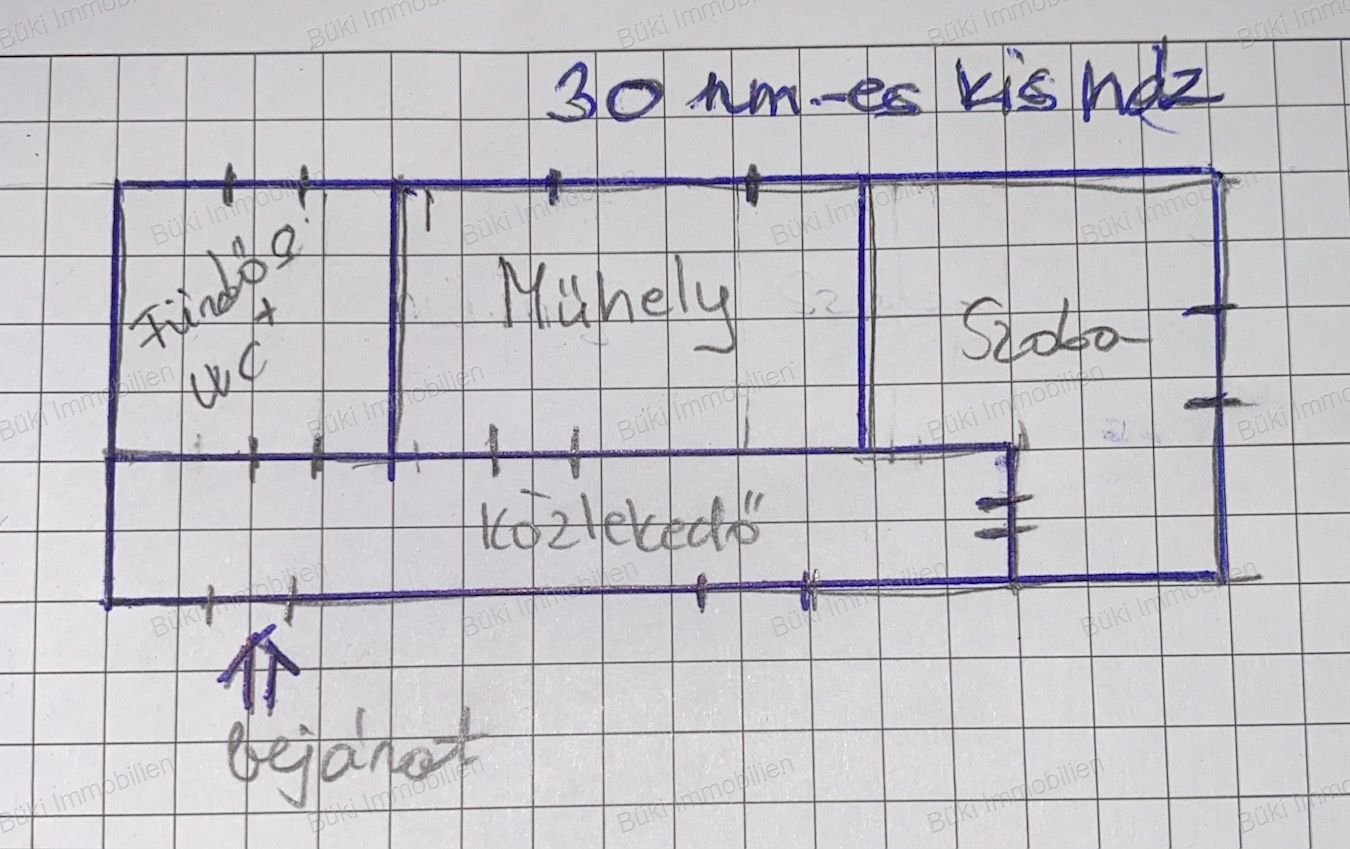 30 nm-es kis ház
Fürdős
+
WC
Műhely
Szoba
Közlekedő
bejárat
Büki Immobilien